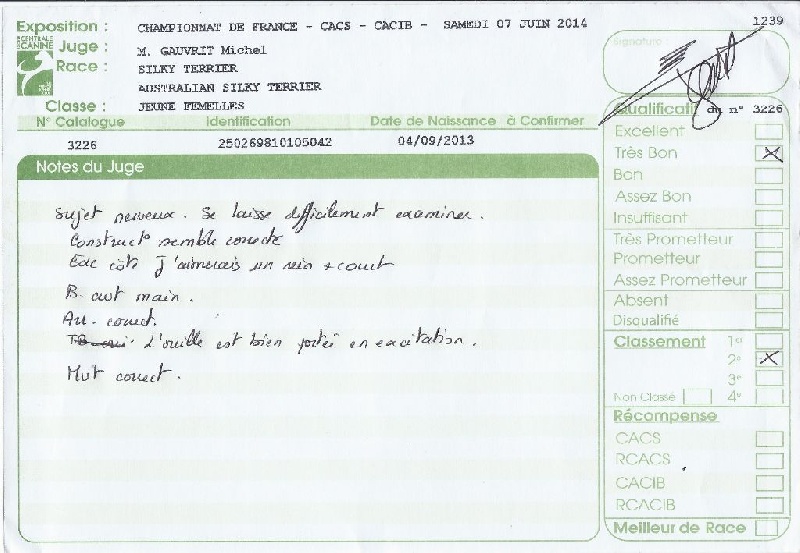 Exposition : CHAMPIONNAT DE FRANCE - CACS - CACIB - SAMEDI 07 JUIN 2014
1239
CENTRALE
CANINE
Juge : M. GAUVRIT Michel
Race : SILKY TERRIER
AUSTRALIAN SILKY TERRIER
Classe : JEUNE FEMELLES
Signature
N° Catalogue Identification Date de Naissance à Confirmer
3226 250269810105042 04/09/2013
Notes du Juge
Sujet nerveux. Se laisse difficilement examiner.
Construct° semble correcte
côté J'aimerais un rein + court
B. main.
Av. correct.
L'oreille est bien portée en excitation.
correct.
Qualificatif du n° 3226
Excellent
Très Bon X
Bon
Assez Bon
Insuffisant
Très Prometteur
Prometteur
Assez Prometteur
Absent
Disqualifié
Classement 1°
2° X
3°
Non Classé 4°
Récompense
CACS
RCACS
CACIB
RCACIB
Meilleur de Race